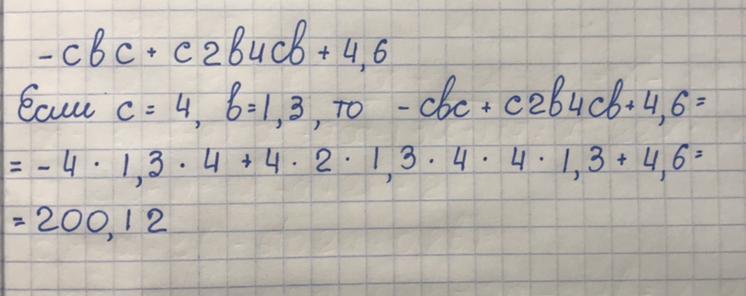 - свс + с2в4св + 4,6
Если с = 4, в = 1,3, то - свс + с2в4св + 4,6 =
= - 4 · 1,3 · 4 + 4 · 2 · 1,3 · 4 · 4 · 1,3 + 4,6 =
= 200,12